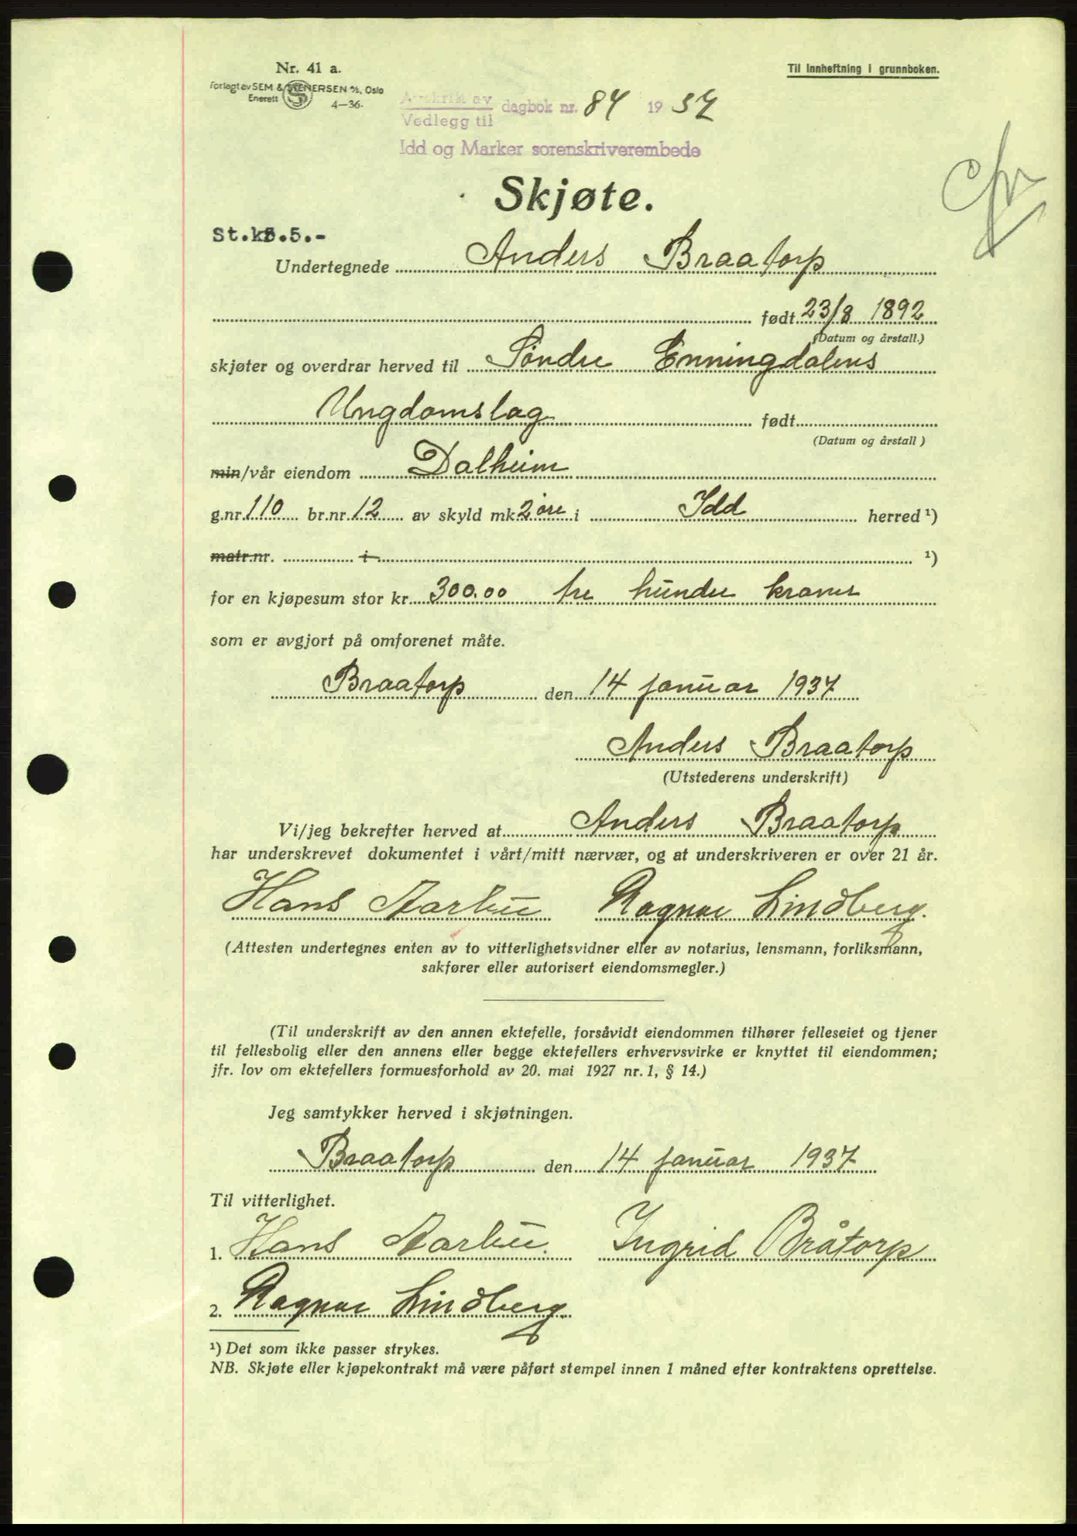 Nr. 41 a.
Forlagt av SEM & STENERSEN A/S, Oslo
Enerett 4—36.
Til innheftning i grunnboken.
Avskrift av
Vedlegg til dagbok nr. 84 1937
Idd og Marker sorenskriverembede
Skjøte.
St.kr.5.-
Undertegnede Anders Braatorp
født 23/8 1892
(Datum og årstall.)
skjøter og overdrar herved til Søndre Enningdalens
Ungdomslag født
(Datum og årstall)
min/vår eiendom Dalheim
g.nr. 110 br.nr. 12 av skyld mk 2 øre i Idd herred ¹)
matr.nr. i ¹)
for en kjøpesum stor kr. 300.00 tre hundre kroner
som er avgjort på omforenet måte.
Braatorp den 14 januar 1937
Anders Braatorp
(Utstederens underskrift)
Vi/jeg bekrefter herved at Anders Braatorp
har underskrevet dokumentet i vårt/mitt nærvær, og at underskriveren er over 21 år.
Hans Aarbu Ragnar Lindberg.
(Attesten undertegnes enten av to vitterlighetsvidner eller av notarius, lensmann, forliksmann,
sakfører eller autorisert eiendomsmegler.)
(Til underskrift av den annen ektefelle, forsåvidt eiendommen tilhører felleseiet og tjener
til fellesbolig eller den annens eller begge ektefellers erhvervsvirke er knyttet til eiendommen;
jfr. lov om ektefellers formuesforhold av 20. mai 1927 nr. 1, § 14.)
Jeg samtykker herved i skjøtningen.
Braatorp den 14 januar 1937
Til vitterlighet.
1. Hans Aarbu. Ingrid Bråtorp
2. Ragnar Lindberg.
¹) Det som ikke passer strykes.
NB. Skjøte eller kjøpekontrakt må være påført stempel innen 1 måned efter kontraktens oprettelse.